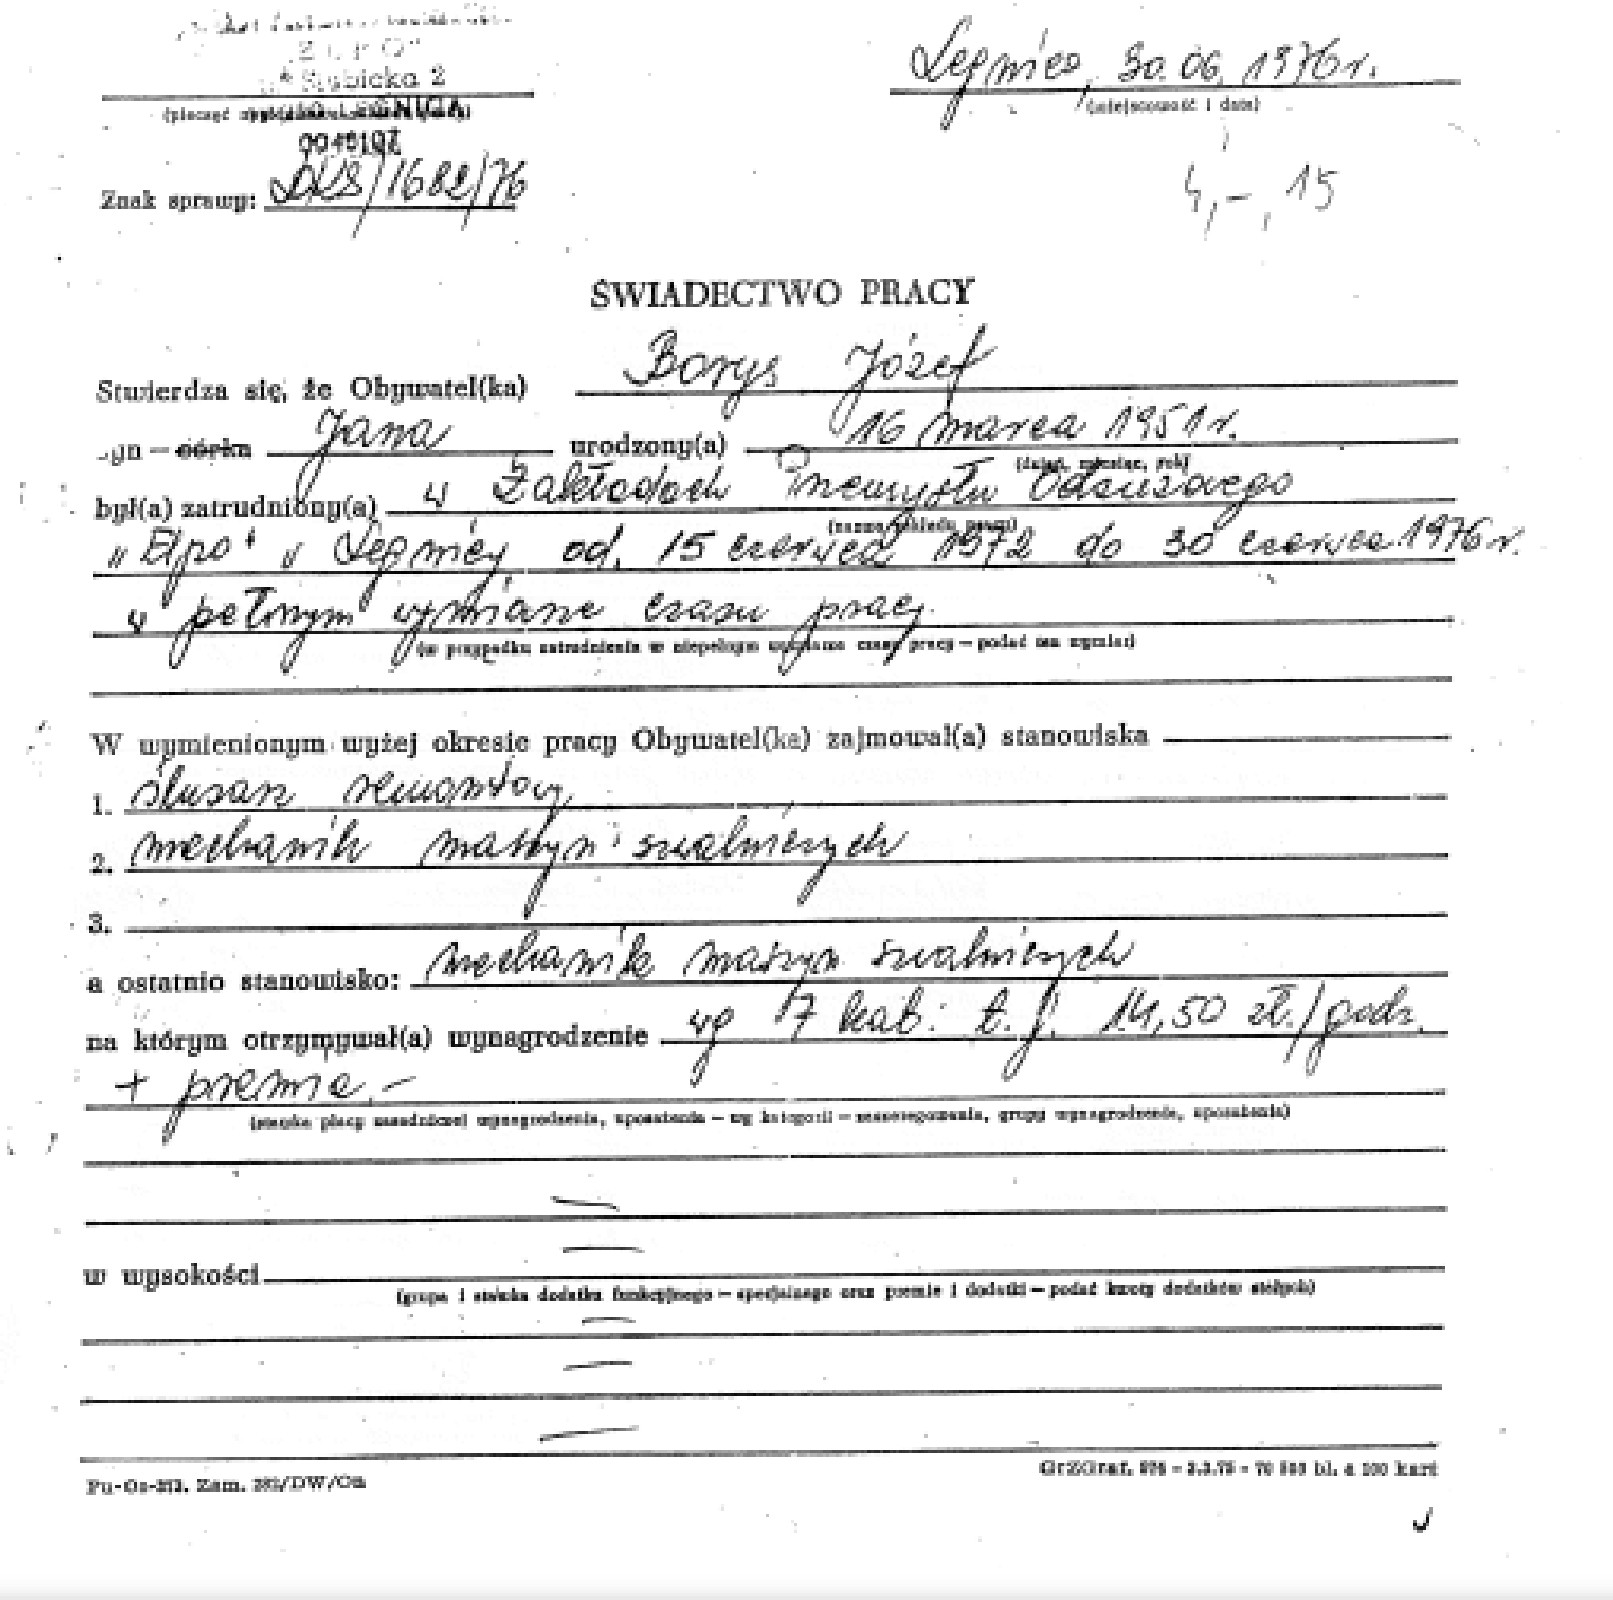 Rąbicka 2
Legnica, 30.06.1976 r.
(pieczęć LEGNICA
(miejscowość i data)
Znak sprawy: /1682/76
4,-, 15
ŚWIADECTWO PRACY
Stwierdza się, że Obywatel(ka) Borys Józef
syn — córka Jana urodzony(a) 16 marca 1951 r.
(dzień, miesiąc, rok)
był(a) zatrudniony(a) w Zakładach Przemysłu Odzieżowego
(nazwa zakładu pracy)
„Elpo" w Legnicy od. 15 czerwca 1972 do 30 czerwca 1976 r.
w pełnym wymiarze czasu pracy.
(w przypadku zatrudnienia w niepełnym wymiarze czasu pracy — podać ten wymiar)
W wymienionym wyżej okresie pracy Obywatel(ka) zajmował(a) stanowiska
1. ślusarz remontowy
2. mechanik maszyn szwalniczych
3.
a ostatnio stanowisko: mechanik maszyn szwalniczych
na którym otrzymywał(a) wynagrodzenie wg 7 kat. t.j. 14,50 zł./godz.
+ premia.-
(stawka płacy zasadniczej wynagrodzenia, uposażenia — wg kategorii — zaszeregowania, grupy wynagrodzenia, uposażenia)
w wysokości
(grupa i stawka dodatku funkcyjnego — specjalnego oraz premie i dodatki — podać kwoty dodatków stałych)
Pu-Os-213. Zam. 282/DW/Oh
GrZGraf. kart